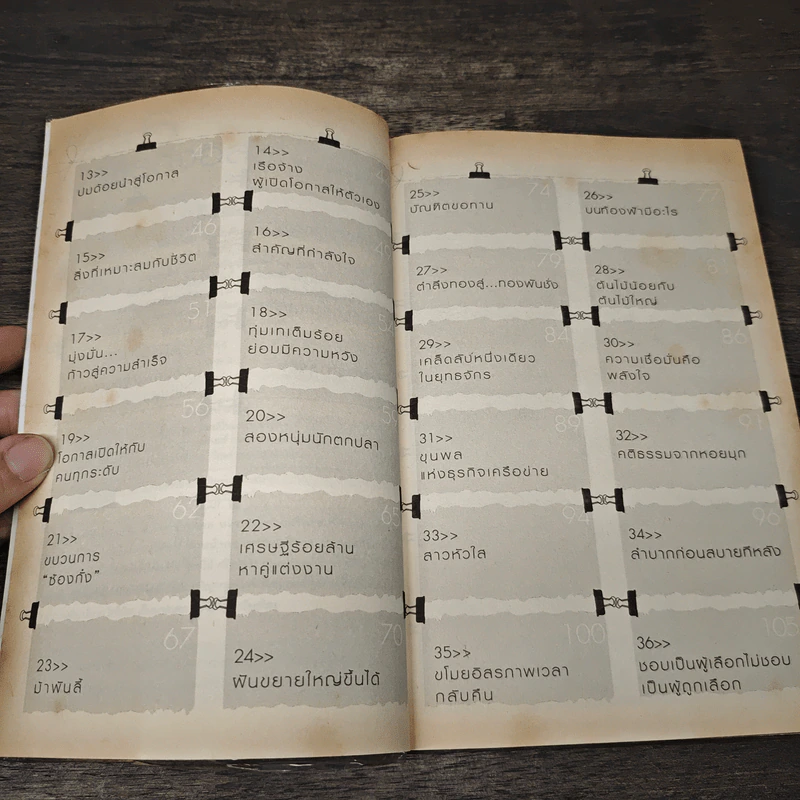 41
13>>
ปมด้อยนำสู่โอกาส
14>>
เรือจ้าง
ผู้เปิดโอกาสให้ตัวเอง
46
15>>
สิ่งที่เหมาะสมกับชีวิต
16>>
สำคัญที่กำลังใจ
51
17>>
มุ่งมั่น...
ก้าวสู่ความสำเร็จ
18>>
ทุ่มเทเต็มร้อย
ย่อมมีความหวัง
56
19>>
โอกาสเปิดให้กับ
คนทุกระดับ
20>>
สองหนุ่มนักตกปลา
62
21>>
ขบวนการ
"ซ้องกั๋ง"
65
22>>
เศรษฐีร้อยล้าน
หาคู่แต่งงาน
67
23>>
ป้าพันลี้
70
24>>
ฝันขยายใหญ่ขึ้นได้
74
25>>
บัณฑิตขอทาน
77
26>>
บนท้องฟ้ามีอะไร
79
27>>
ตำลึงทองสู่...ทองพันชั่ง
28>>
ต้นไม้น้อยกับ
ต้นไม้ใหญ่
84
29>>
เคล็ดลับหนึ่งเดียว
ในยุทธจักร
86
30>>
ความเชื่อมั่นคือ
พลังใจ
89
31>>
ขุนพล
แห่งธุรกิจเครือข่าย
91
32>>
คติธรรมจากหอยมุก
94
33>>
สาวหัวใส
96
34>>
ลำบากก่อนสบายทีหลัง
100
35>>
ขโมยอิสรภาพเวลา
กลับคืน
105
36>>
ชอบเป็นผู้เลือกไม่ชอบ
เป็นผู้ถูกเลือก